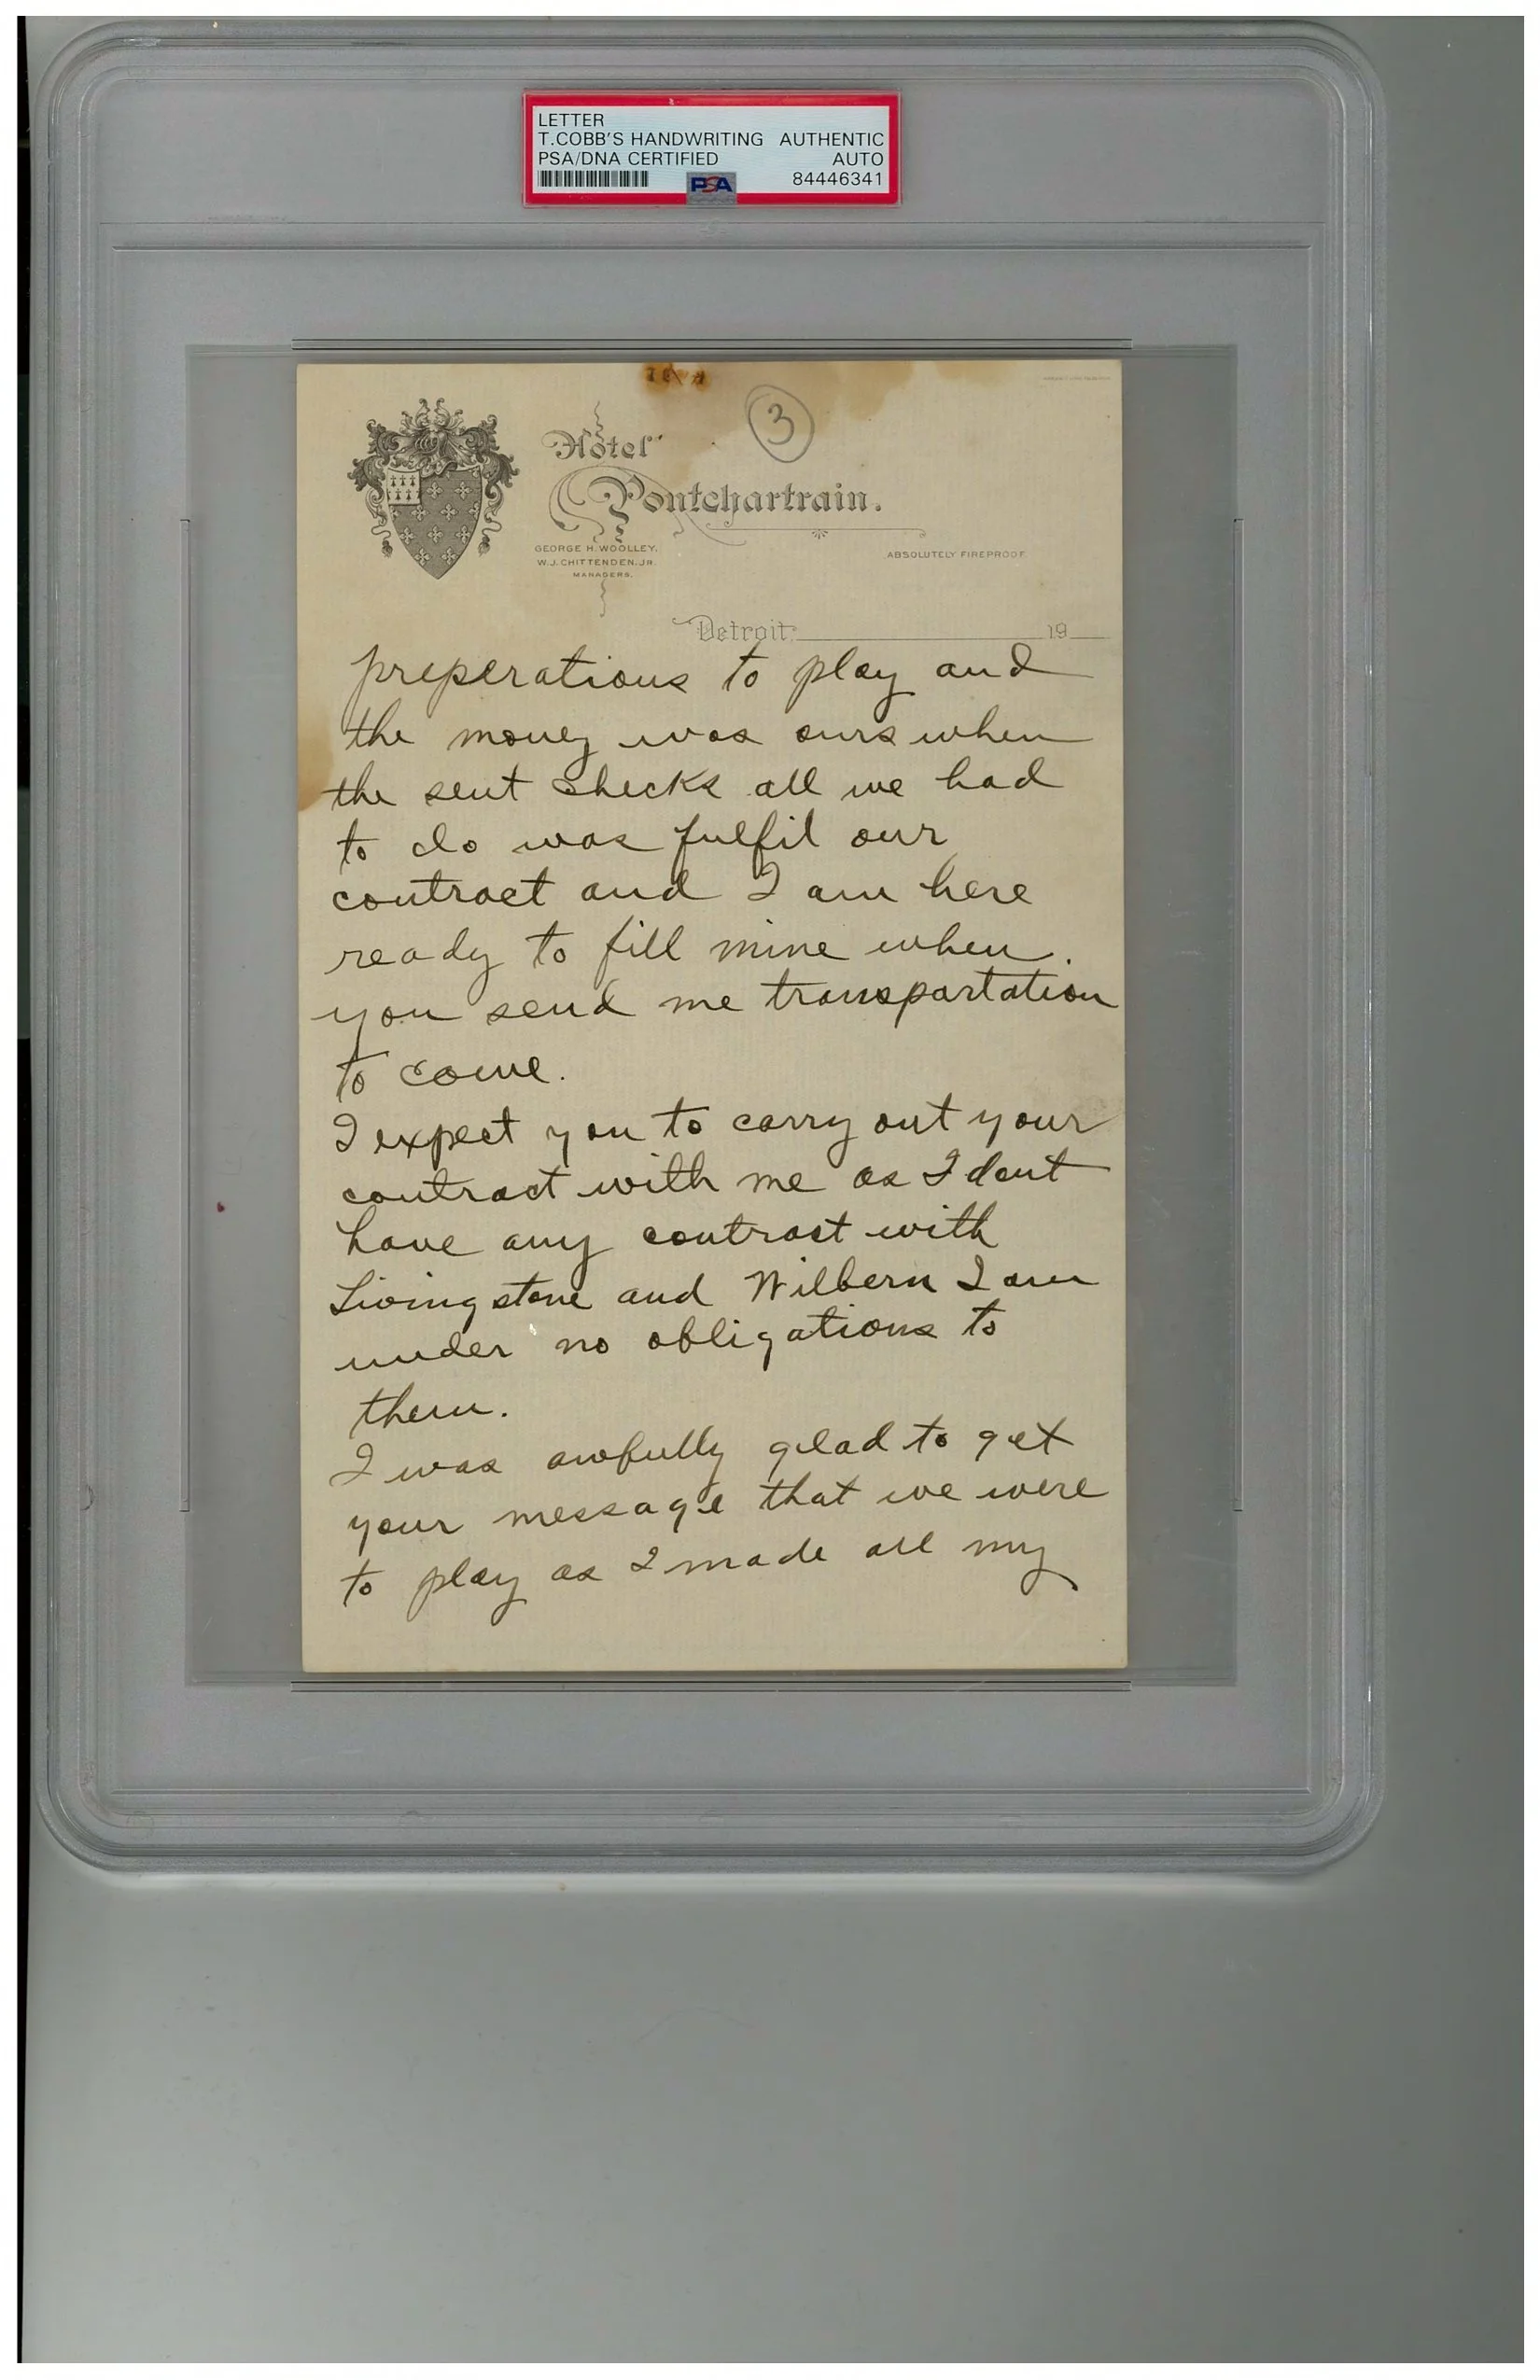 LETTER
T.COBB'S HANDWRITING AUTHENTIC
PSA/DNA CERTIFIED AUTO
PSA 84446341
3
Hotel
Pontchartrain.
GEORGE H. WOOLLEY.
W.J. CHITTENDEN, JR.
MANAGERS.
ABSOLUTELY FIREPROOF.
Detroit. 19
preperations to play and
the money was ours when
the sent checks all we had
to do was fulfil our
contract and I am here
ready to fill mine when
you send me transportation
to come.
I expect you to carry out your
contract with me as I dont
have any contract with
Livingstone and Wilbern I am
under no obligations to
them.
I was awfully glad to get
your message that we were
to play as I made all my